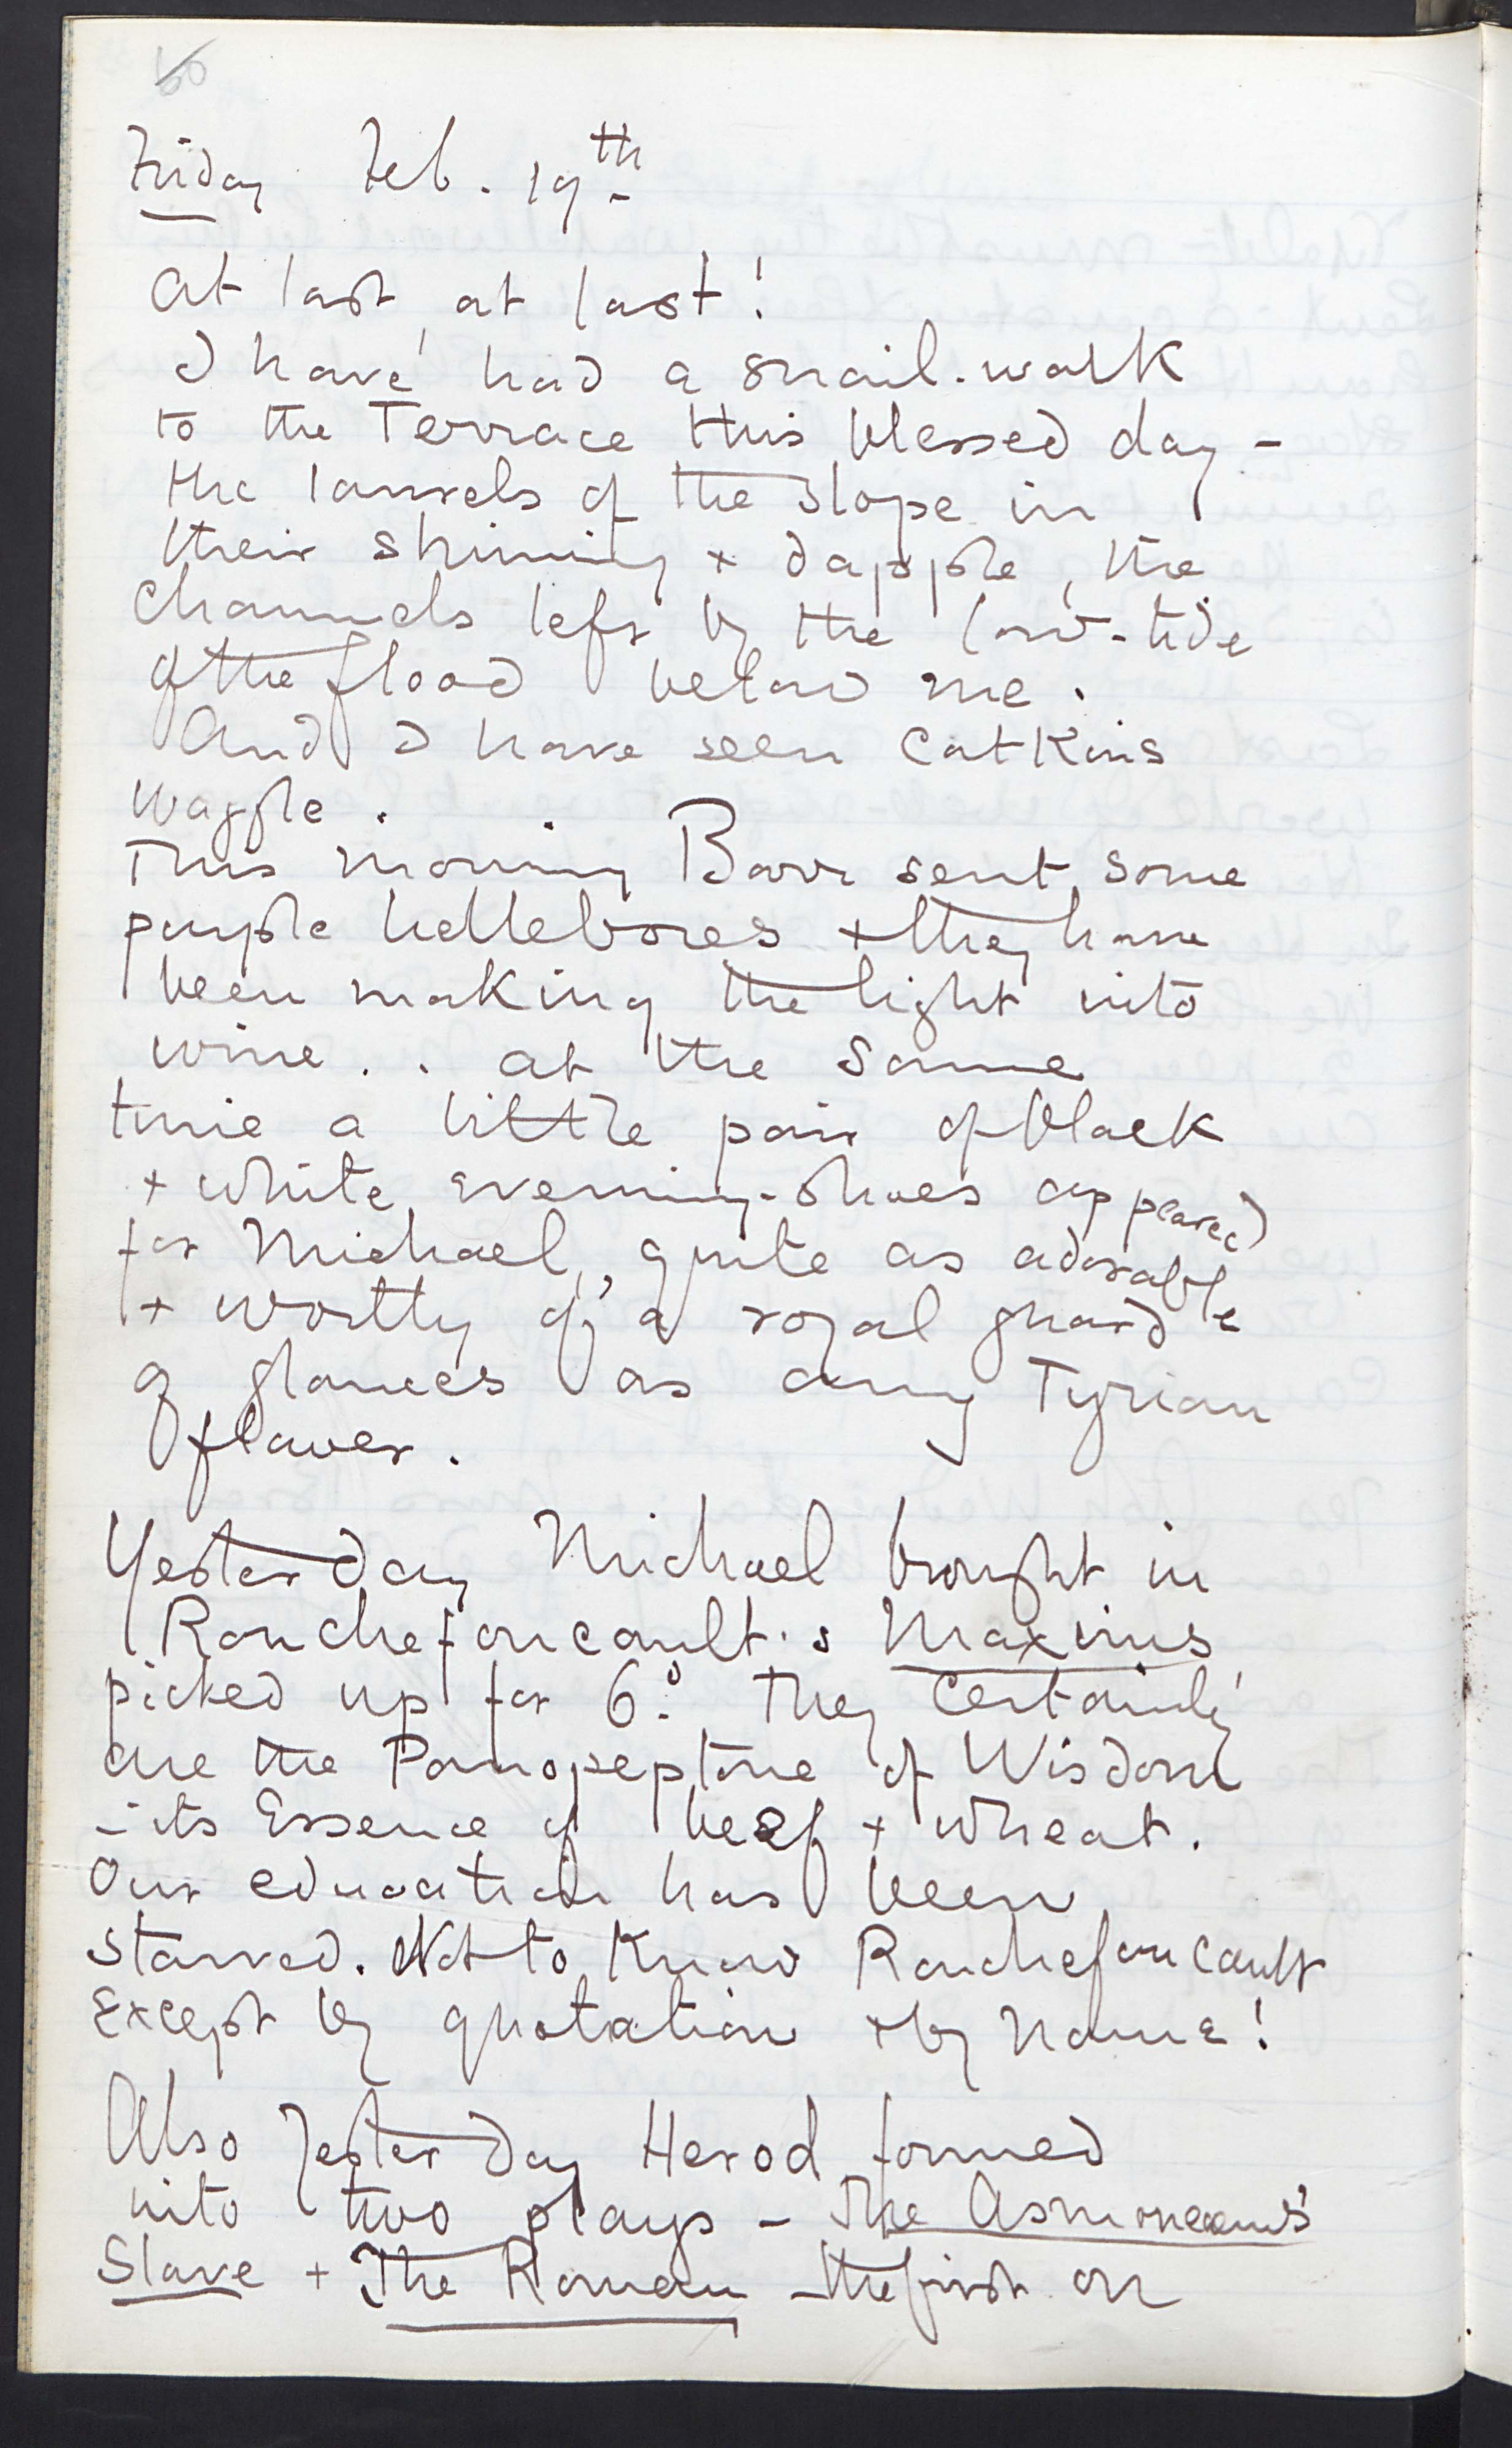 60
Friday Feb. 19th
At last, at last!
I have had a snail-walk
to the Terrace this blessed day -
the laurels of the slope in
their shining + dapple, the
channels left by the low-tide
of the flood below me.
And I have seen catkins
waggle.
This morning Barr sent some
purple hellebores + they have
been making the light into
wine . . at the same
time a little pair of black
+ white evening-shoes appeared
for Michael, quite as adorable
+ worthy of a royal guard
of glances as any Tyrian
flower.
Yesterday Michael brought in
Rouchefoucault's Maxims
picked up for 6d. They certainly
are the Panopeptone of Wisdom
- its Essence of beef + wheat.
Our education has been
starved. Not to know Rouchefoucault
except by quotation + by name!
Also yesterday Herod formed
into two plays - The Asmonean's
Slave + The Roman - the first on